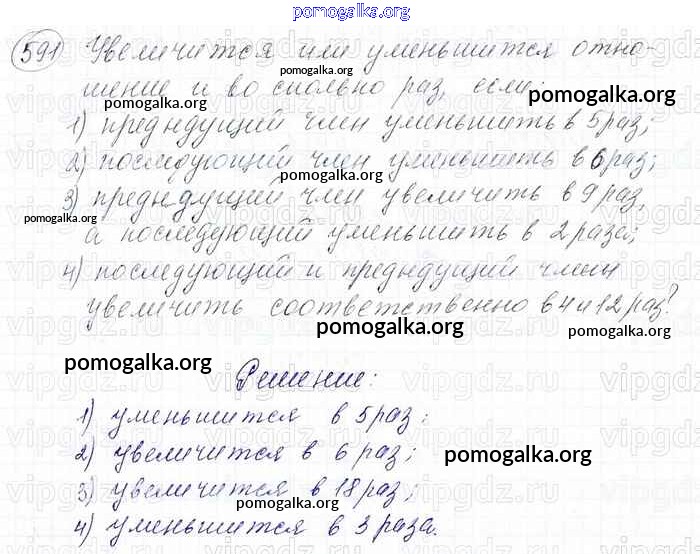 pomogalka.org
591 Увеличится или уменьшится отно-
шение и во сколько раз, если:
pomogalka.org
pomogalka.org
pomogalka.org
1) предыдущий член уменьшить в 5 раз;
2) последующий член уменьшить в 6 раз;
pomogalka.org
3) предыдущий член увеличить в 9 раз,
pomogalka.org
а последующий уменьшить в 2 раза;
4) последующий и предыдущий члены
увеличить соответственно в 4 и 12 раз?
pomogalka.org
pomogalka.org
pomogalka.org
Решение:
1) уменьшится в 5 раз;
2) увеличится в 6 раз;
pomogalka.org
3) увеличится в 18 раз;
pomogalka.org
4) уменьшится в 3 раза.
vipgdz.ru